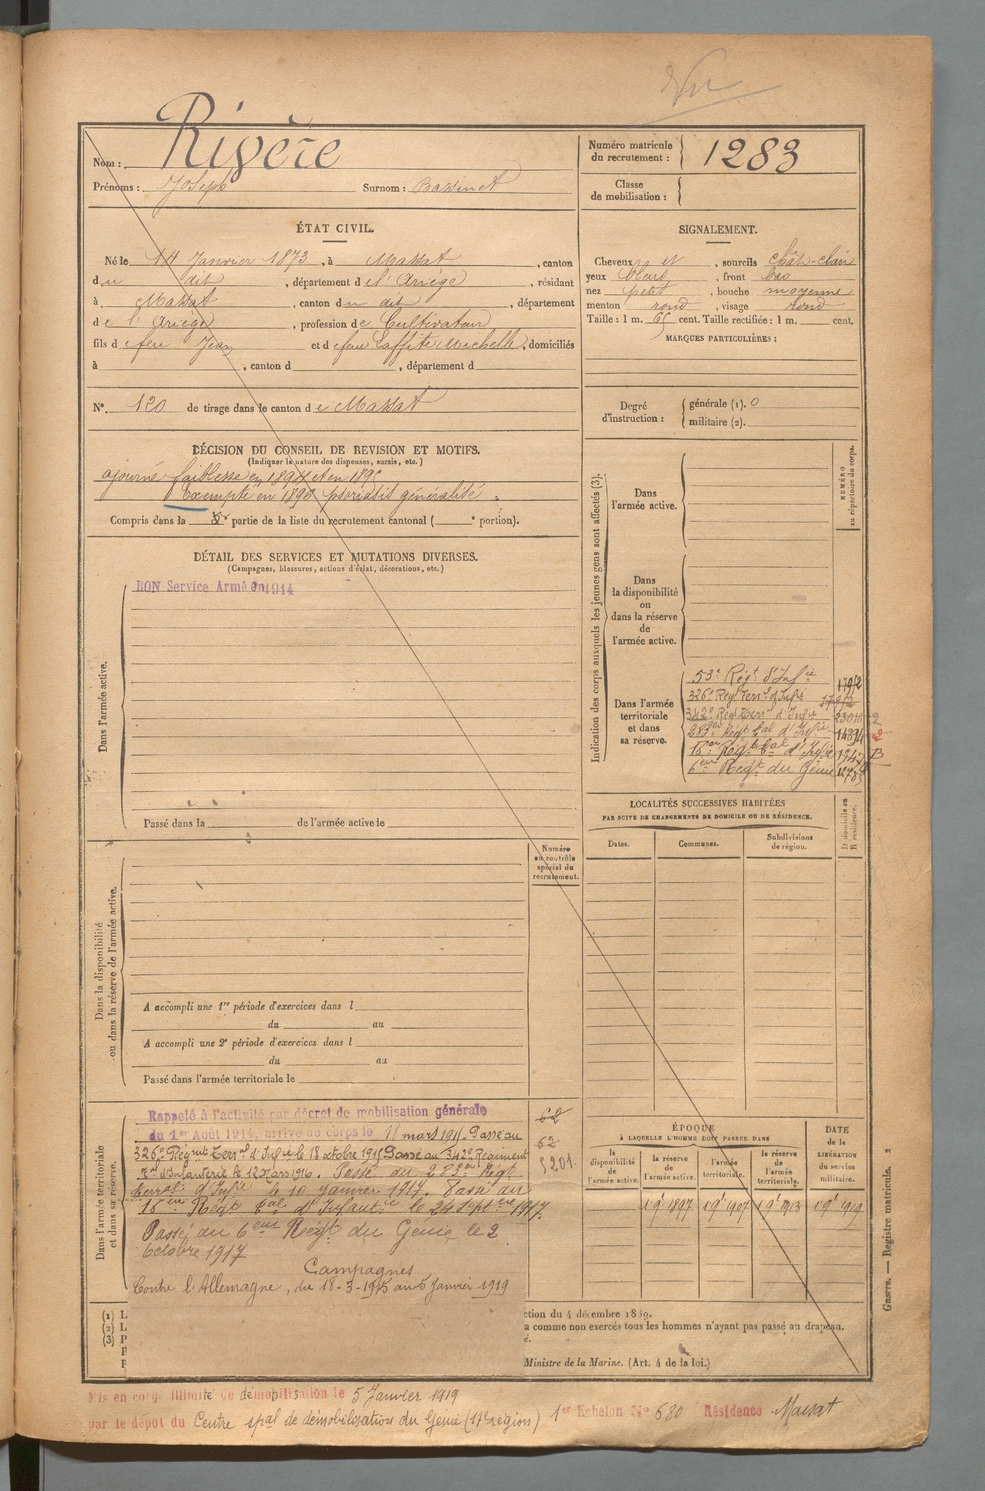 Vu
Nom : Rivère
Prénoms : Joseph Surnom : Bassinet
Numéro matricule du recrutement : 1283
Classe de mobilisation :
ÉTAT CIVIL.
Né le 14 Janvier 1873, à Massat, canton
du dit, département de l'Ariège, résidant
à Massat, canton du dit, département
de l'Ariège, profession de Cultivateur
fils de feu Jean et de feue Laffite Michelle, domiciliés
à , canton d , département d
N° 120 de tirage dans le canton de Massat
SIGNALEMENT.
Cheveux et , sourcils chât-clair
yeux bleus , front bas
nez petit , bouche moyenne
menton rond , visage rond
Taille : 1 m. 65 cent. Taille rectifiée : 1 m. cent.
MARQUES PARTICULIÈRES :
Degré d'instruction : générale (1). 0
militaire (2).
DÉCISION DU CONSEIL DE REVISION ET MOTIFS.
(Indiquer la nature des dispenses, sursis, etc.)
ajourné faiblesse en 1894 et en 1895
Exempté en 1896 psoriasis généralisé
Compris dans la partie de la liste du recrutement cantonal ( e portion).
DÉTAIL DES SERVICES ET MUTATIONS DIVERSES.
(Campagnes, blessures, actions d'éclat, décorations, etc.)
BON Service Armé en 1914
Dans l'armée active.
Passé dans la de l'armée active le
Indication des corps auxquels les jeunes gens sont affectés (3).
NUMÉRO au répertoire du corps.
Dans l'armée active.
Dans la disponibilité ou dans la réserve de l'armée active.
Dans l'armée territoriale et dans sa réserve.
53e Régt d'Infie
326e Reg Terral d'Infie
342e Régt Terral d'Infie 23018
283e Régt tal d'Infie 14394
16em Régt tal d'Infie
6em Régt du Génie
LOCALITÉS SUCCESSIVES HABITÉES
PAR SUITE DE CHANGEMENTS DE DOMICILE OU DE RÉSIDENCE.
Dates. Communes. Subdivisions de région. D. domicile ou R. résidence.
Numéro au contrôle spécial du recrutement.
Dans la disponibilité ou dans la réserve de l'armée active.
A accompli une 1re période d'exercices dans l
du au
A accompli une 2e période d'exercices dans l
du au
Passé dans l'armée territoriale le
Dans l'armée territoriale et dans sa réserve.
Rappelé à l'activité par décret de mobilisation générale
du 1er Août 1914, arrivé au corps le 18 mars 1915. Passé au
326e Régmt Terral d'Infie le 18 octobre 1915 Passé au 342e Régiment
Tal d'Infanterie le 12 Mars 1916. Passé au 283em Régt
terral d'Infie le 10 janvier 1917. Passé au
16em Régt tal d'Infantie le 24 Septbre 1917.
Passé au 6em Régt du Génie le 2
Octobre 1917
Campagnes
Contre l'Allemagne, du 18-3-1915 au 5 Janvier 1919
62
62
5201
ÉPOQUE
À LAQUELLE L'HOMME DOIT PASSER DANS
la disponibilité de l'armée active. la réserve de l'armée active. l'armée territoriale. la réserve de l'armée territoriale.
DATE de la LIBÉRATION du service militaire.
1 9bre 1897 1 9bre 1907 1 9bre 1913 1 9bre 1919
(1) L
(2) L
(3) P
ction du 4 décembre 1889.
a comme non exercés tous les hommes n'ayant pas passé au drapeau.
Ministre de la Marine. (Art. 4 de la loi.)
Guerre. — Registre matricule. 2
Mis en congé illimité de démobilisation le 5 Janvier 1919
par le dépôt du Centre spal de démobilisation du Génie (17e région) 1er Echelon N° 680 Résidence Massat